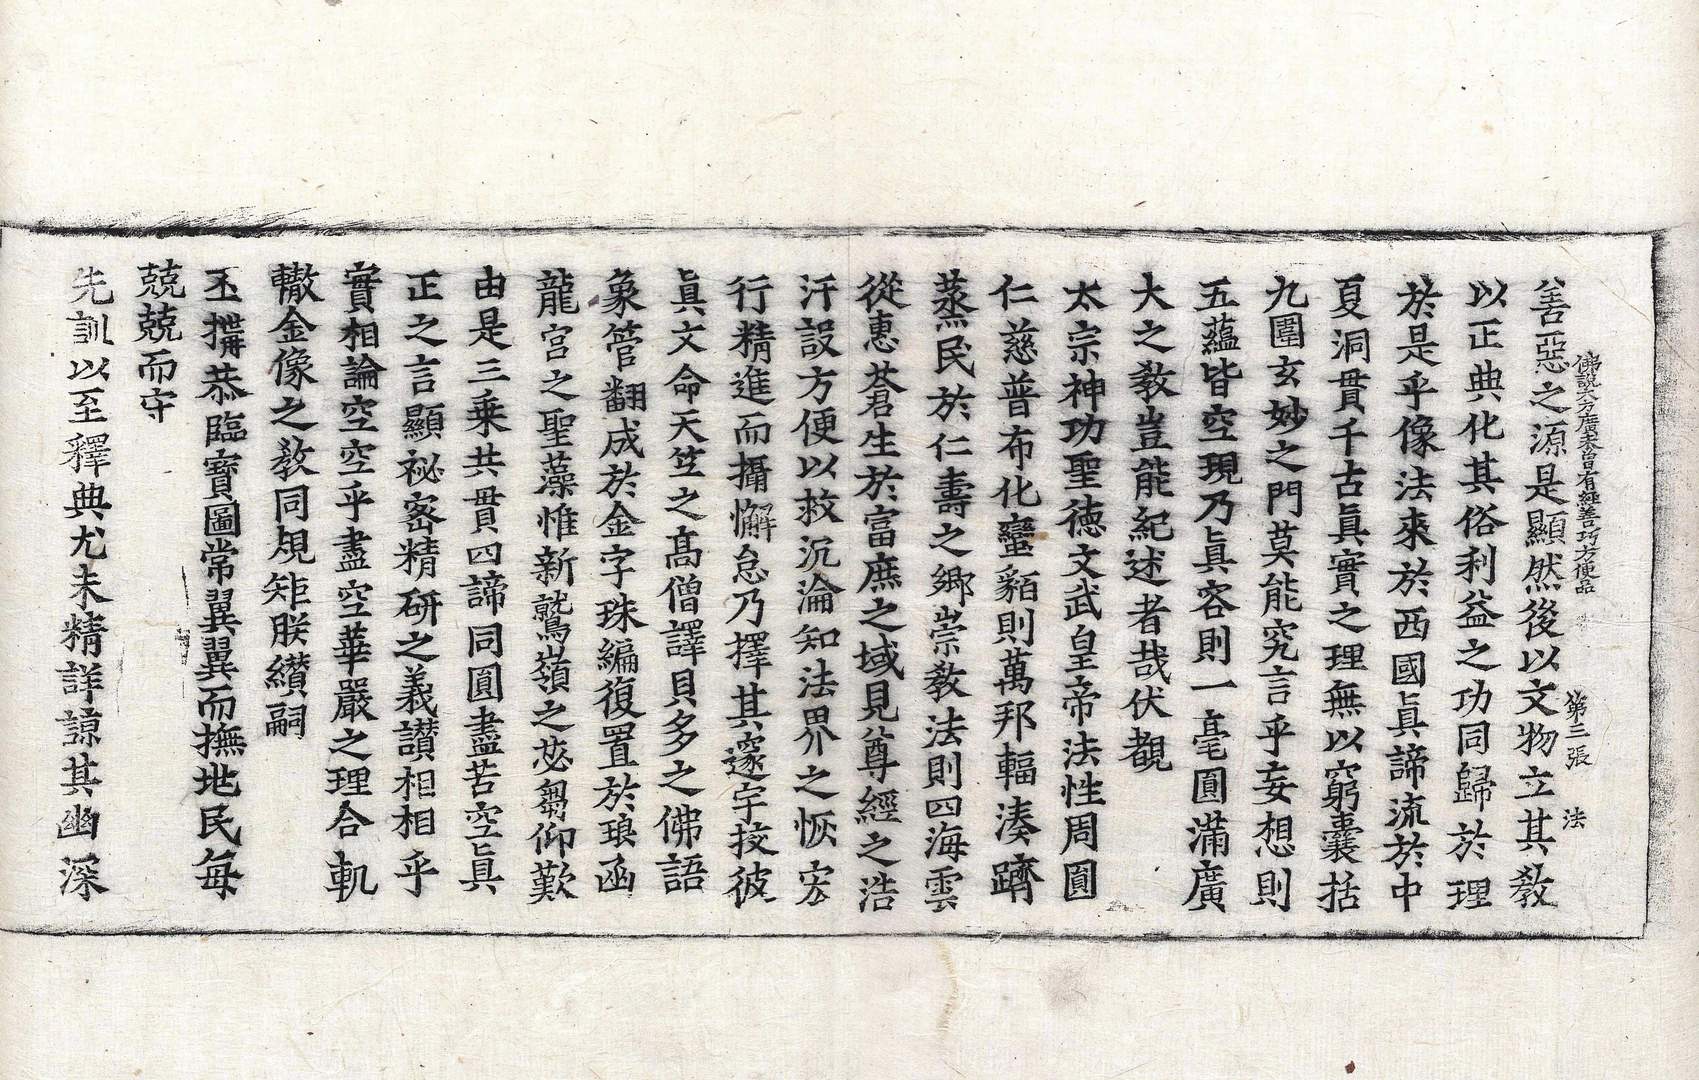 佛說大方廣未曾有經善巧方便品 第三張 法
善惡之源是顯然後以文物立其教
以正典化其俗利益之功同歸於理
於是乎像法來於西國眞諦流於中
夏洞貫千古眞實之理無以窮囊括
九圍玄妙之門莫能究言乎妄想則
五蘊皆空現乃眞容則一毫圓滿廣
大之敎豈能紀述者哉伏覩
太宗神功聖德文武皇帝法性周圓
仁慈普布化蠻貊則萬邦輻湊躋
蒸民於仁壽之鄉崇敎法則四海雲
從惠蒼生於富庶之域見尊經之浩
汗設方便以救沉淪知法界之恢宏
行精進而攝懈怠乃擇其邃宇挍彼
眞文命天竺之高僧譯貝多之佛語
象管翻成於金字珠編復置於琅函
龍宮之聖藻惟新鷲嶺之苾芻仰歎
由是三乘共貫四諦同圓盡苦空眞
正之言顯祕密精研之義讚相相乎
實相論空空乎盡空華嚴之理合軌
轍金像之敎同規矩朕纘嗣
丕搆恭臨寶圖常翼翼而撫地民每
兢兢而守
先訓以至釋典尤未精詳諒其幽深